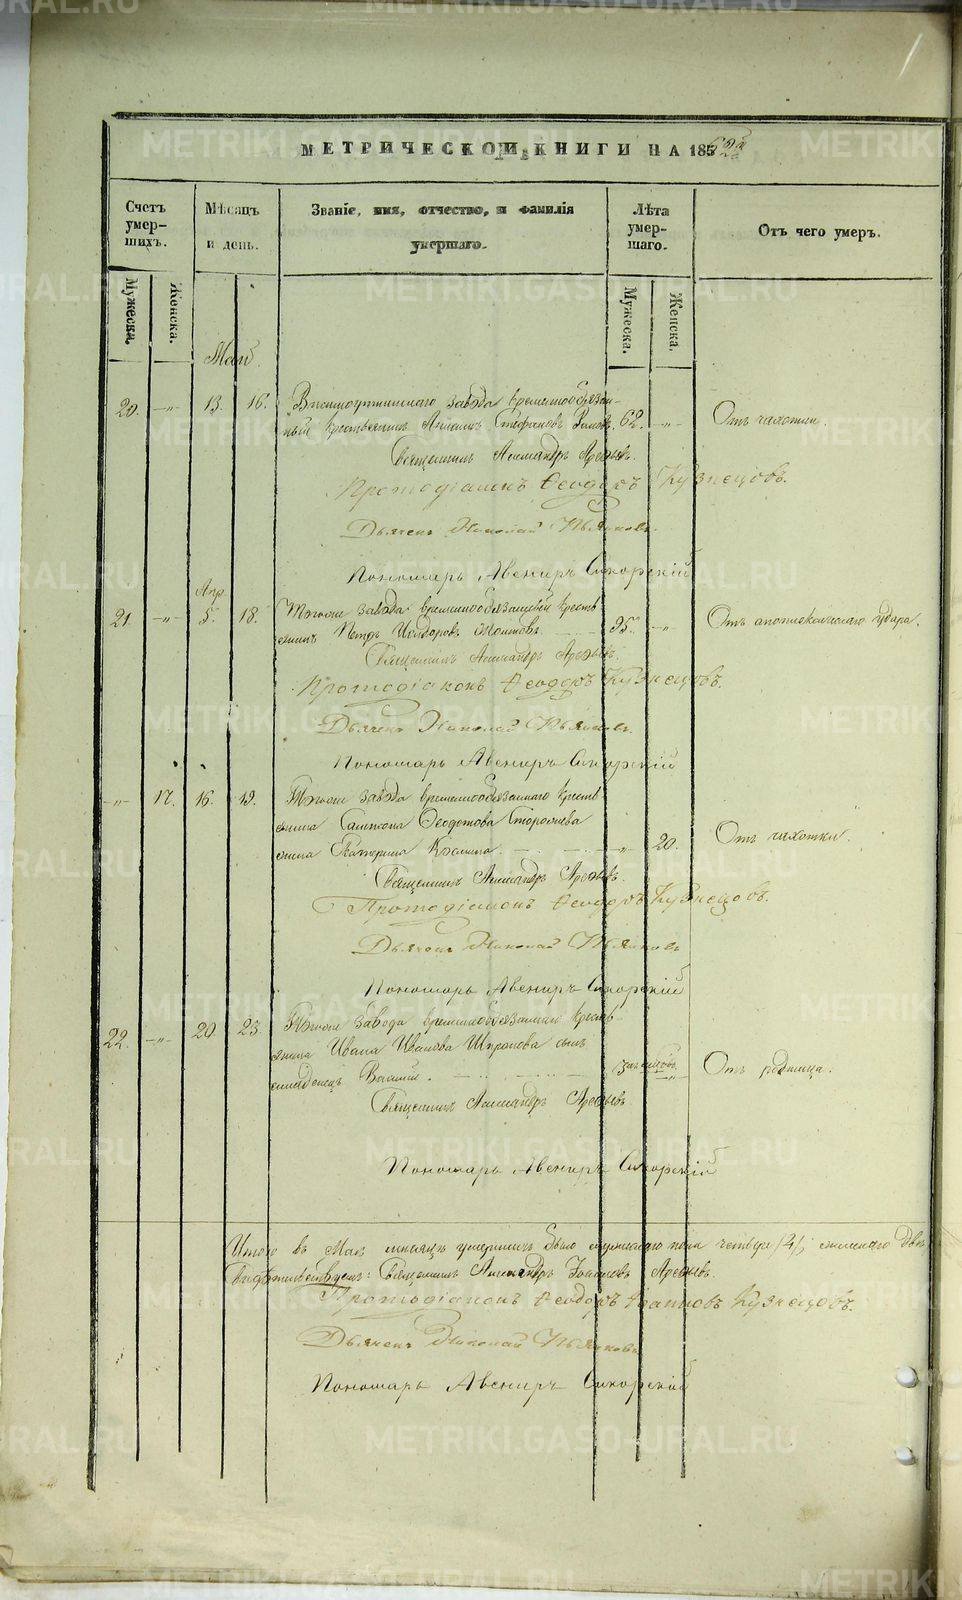 МЕТРИЧЕСКОЙ КНИГИ НА 1862й
Счетъ умер-шихъ.
Мѣсяцъ и день.
Званіе, имя, отчество, и фамилія умершаго.
Лѣта умер-шаго.
Отъ чего умеръ.
Мужеска. Женска.
Мужеска. Женска.
Май.
20. -„- 13. 16. завода временнообязан-
ный крестьянинъ Стефановъ 62. -„- Отъ чахотки.
Священникъ Александръ Арефьевъ
Протодіаконъ Ѳеодоръ Кузнецовъ.
Дьячекъ Николай
Пономарь Авениръ Сикорскій
Апр.
21 -„- 5. 18. Тогоже завода временнообязанный кресть-
янинъ Петръ 35. -„- Отъ апоплексическаго удара.
Священникъ Александръ Арефьевъ.
Протодіаконъ Ѳеодоръ Кузнецовъ.
Дьячекъ Николай
Пономарь Авениръ Сикорскій
-„- 17. 16. 19. Тогоже завода временнообязаннаго кресть-
янина Самсона Ѳеодотова
жена Екатерина „ 20. Отъ чахотки.
Священникъ Александръ Арефьевъ.
Протодіаконъ Ѳеодоръ Кузнецовъ.
Дьячекъ Николай
Пономарь Авениръ Сикорскій
22. -„- 20 23. Тогоже завода временнообязаннаго кресть-
янина Ивана Иванова сынъ
младенецъ Василій. „ Отъ родимца.
Священникъ Александръ Арефьевъ
Пономарь Авениръ Сикорскій
Итого въ Маѣ мѣсяцѣ умершихъ было мужескаго пола четыре /4/, женскаго две
Свидѣтельствуемъ: Священникъ Александръ Арефьевъ
Протодіаконъ Ѳеодоръ Кузнецовъ.
Дьячекъ Николай
Пономарь Авениръ Сикорскій
METRIKI.GASO-URAL.RU